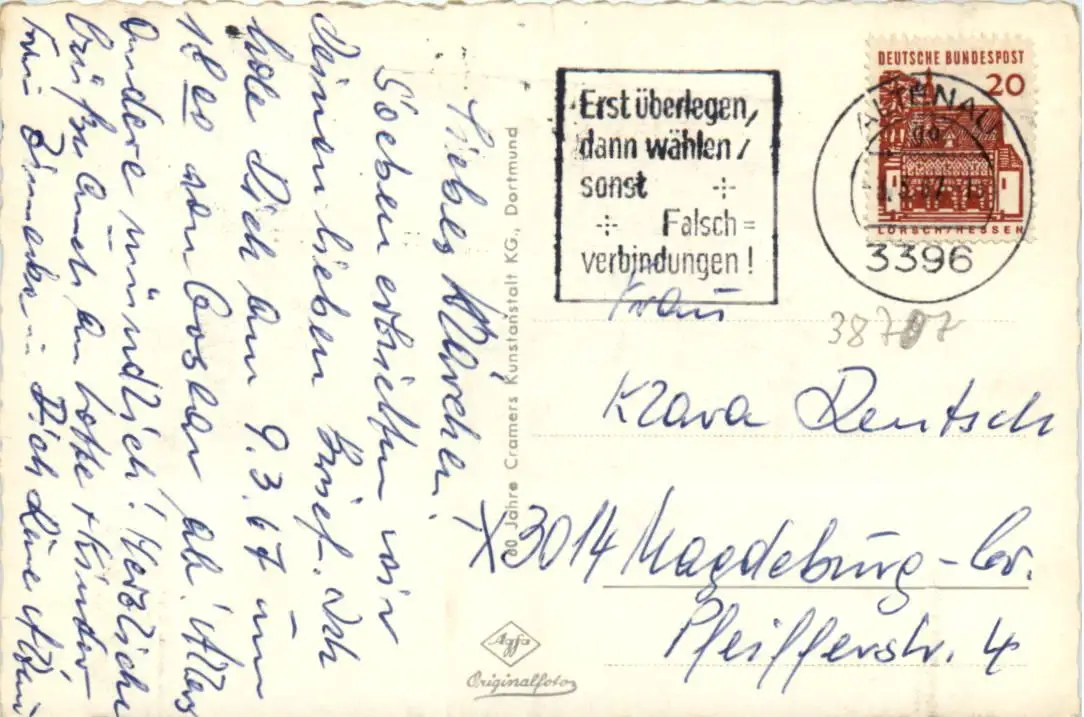 Liebes Klärchen!
Soeben erhielten wir
Deinen lieben Brief. Ich
hole Dich am 9.3.67 um
18 00 von Goslar ab! Alles
Andere mündlich! Herzliche
Grüße auch an Lotte + Kinder
Dich Deine
60 Jahre Cramers Kunstanstalt KG., Dortmund
Agfa
Originalfoto
Erst überlegen,
dann wählen /
sonst
Falsch=
verbindungen!
DEUTSCHE BUNDESPOST
20
LORSCH/HESSEN
ALTENAU
3396
38707
Frau
Klara Deutsch
X3014 Magdeburg-
Pfeifferstr. 4